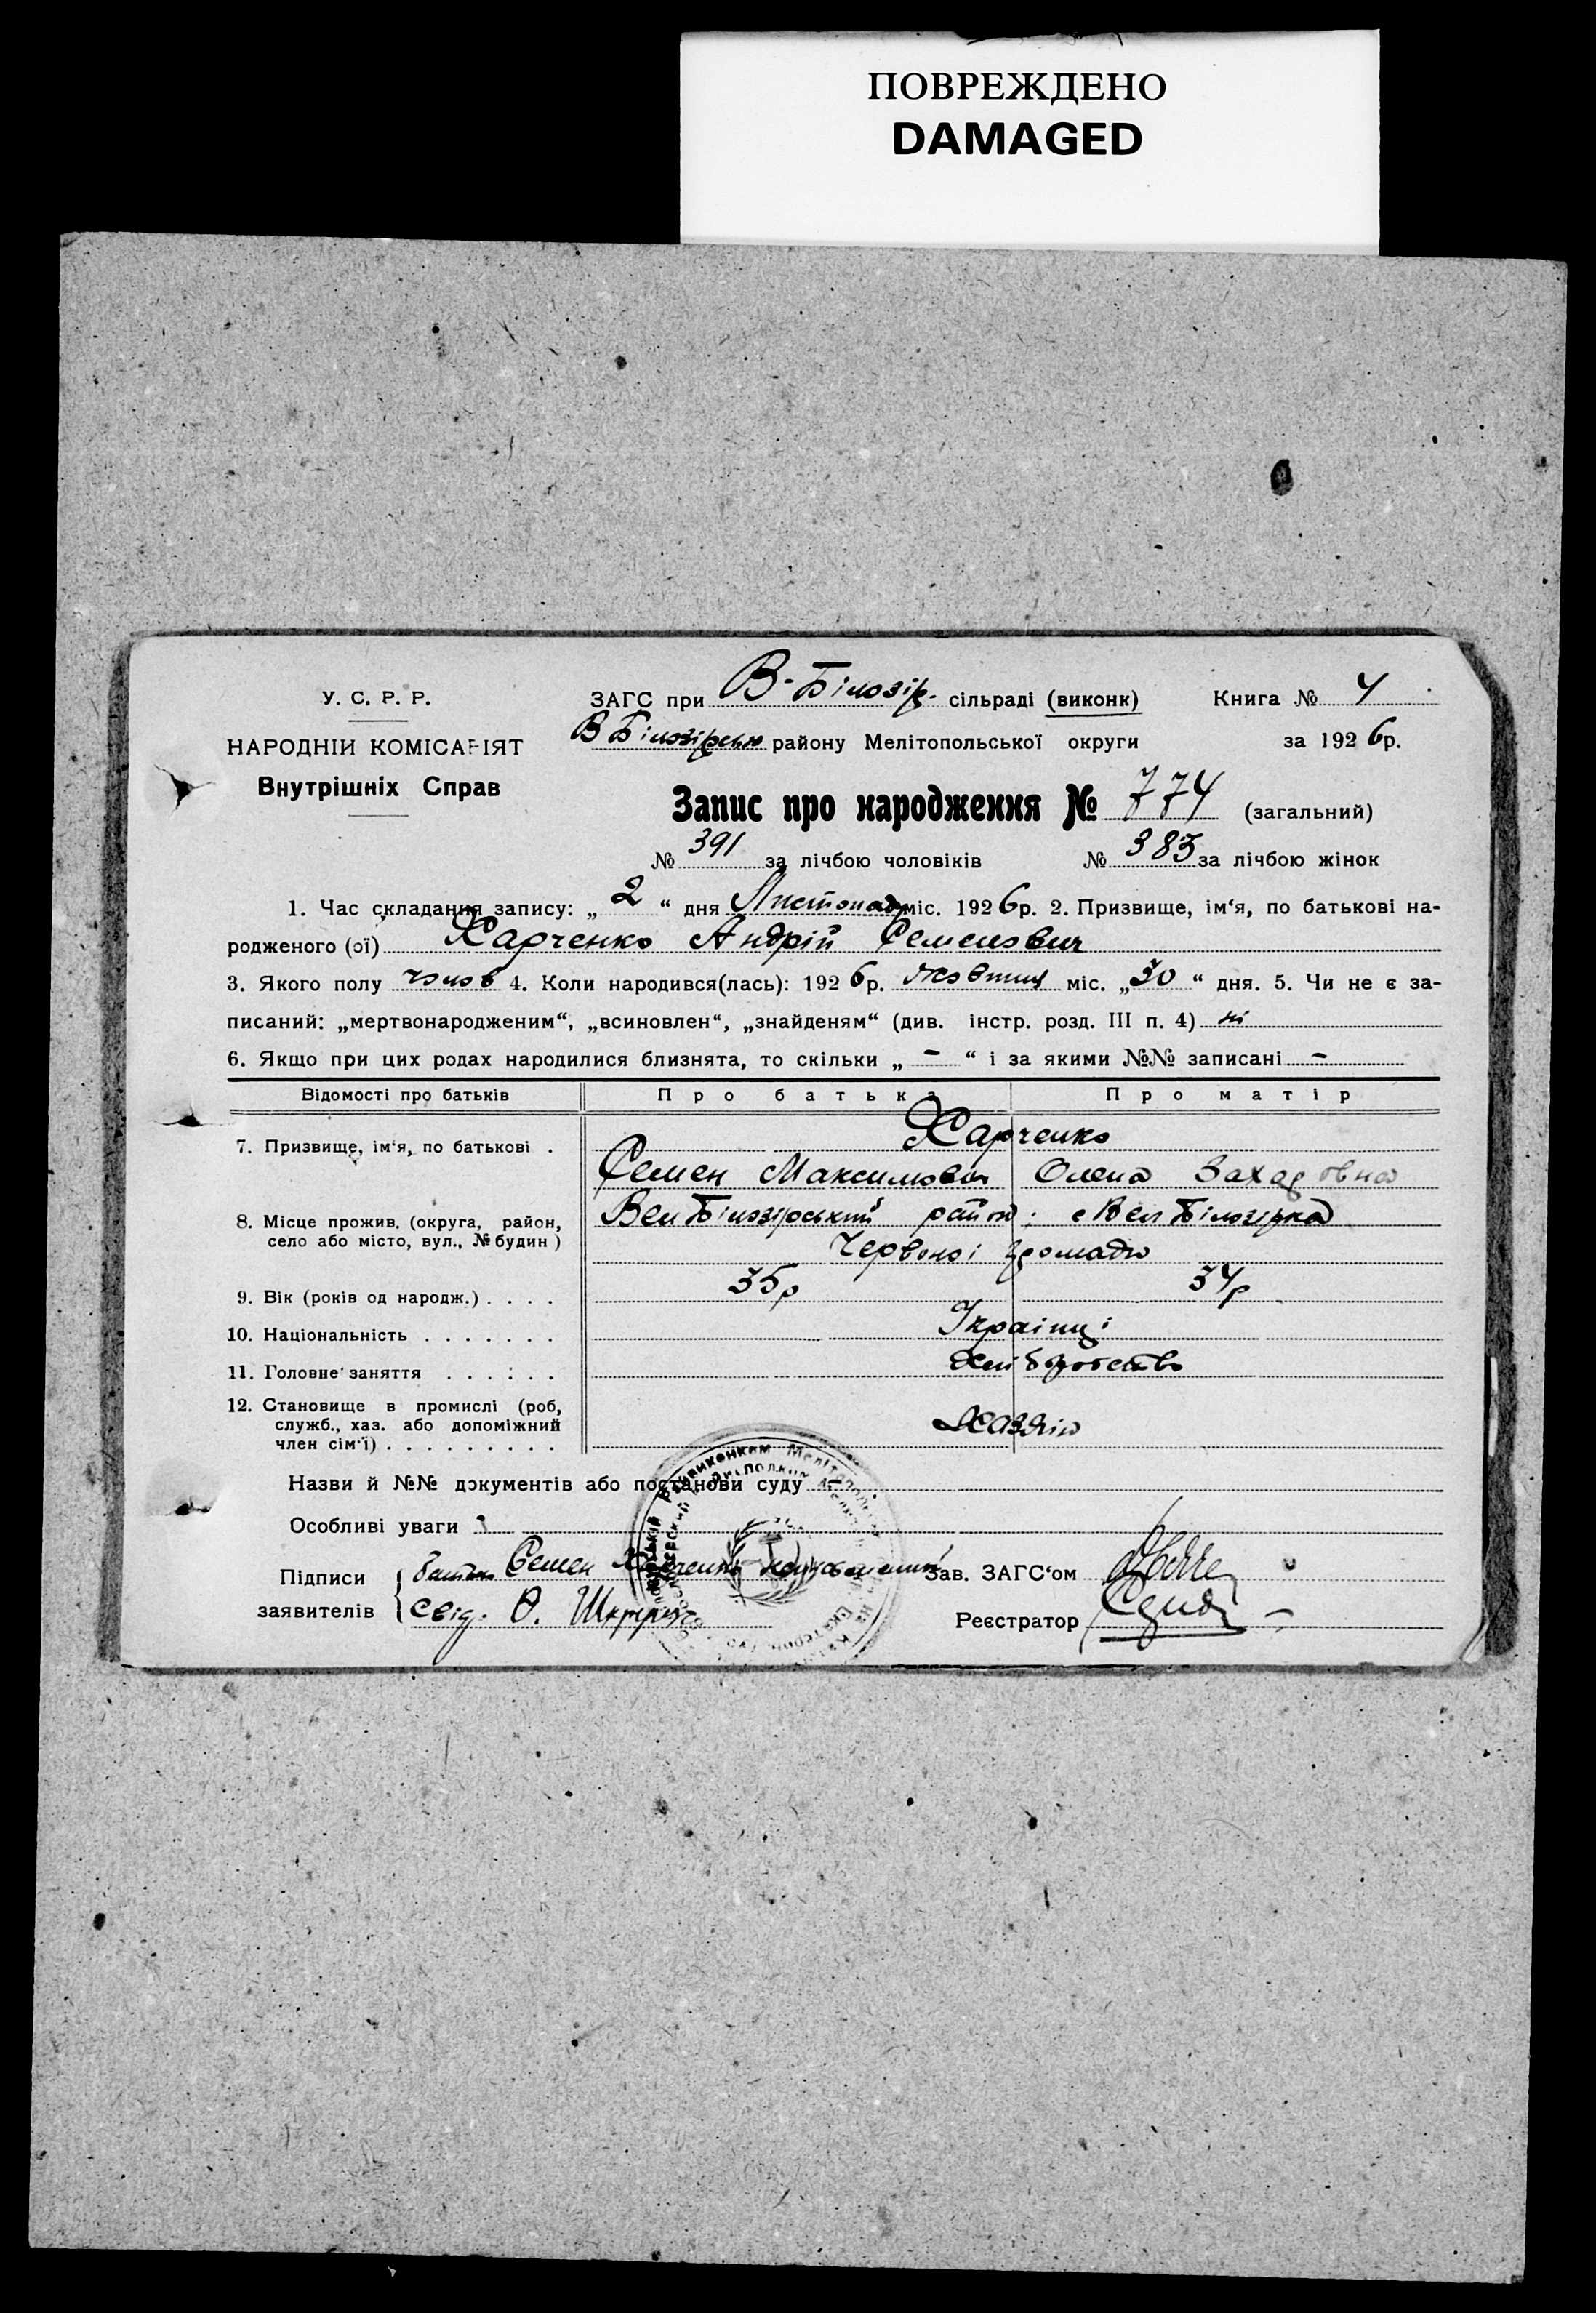 ПОВРЕЖДЕНО
DAMAGED
У. С. Р. Р.
НАРОДНІЙ КОМІСАРІЯТ
Внутрішніх Справ
ЗАГС при В-Білозір- сільраді (виконк)
Книга № 4
В Білозірсько району Мелітопольської округи
за 1926р.
Запис про народження № 774 (загальний)
№ 391 за лічбою чоловіків № 383 за лічбою жінок
1. Час складання запису: „ 2 “ дня Листопад міс. 1926р. 2. Призвище, ім‘я, по батькові на-
родженого (ої) Харченко Андрій Семенович
3. Якого полу чолов 4. Коли народився(лась): 1926р. Жовтиц міс. „30 “ дня. 5. Чи не є за-
писаний: „мертвонародженим“, „всиновлен“, „знайденям“ (див. інстр. розд. III п. 4) ні
6. Якщо при цих родах народилися близнята, то скільки „ - “ і за якими №№ записані -
Відомості про батьків Про батька Про матір
7. Призвище, ім‘я, по батькові . Харченко
Семен Максимович Олена Захаровна
8. Місце прожив. (округа, район,
село або місто, вул., № будин )
Вел Білозірський район; с Вел Білозірка
Червоної громади
9. Вік (років од народж.) . . . . 35р 34р
10. Національність . . . . . . . Українці
11. Головне заняття . . . : . . Хліборобство
12. Становище в промислі (роб,
служб., хаз. або допоміжний
член сім‘ї) . . . . . . . . . Хазяїн
Назви й №№ документів або постанови суду
Особливі уваги
Підписи
заявителів
батько Семен Харченко
свід. О.
Зав. ЗАГС‘ом
Реєстратор